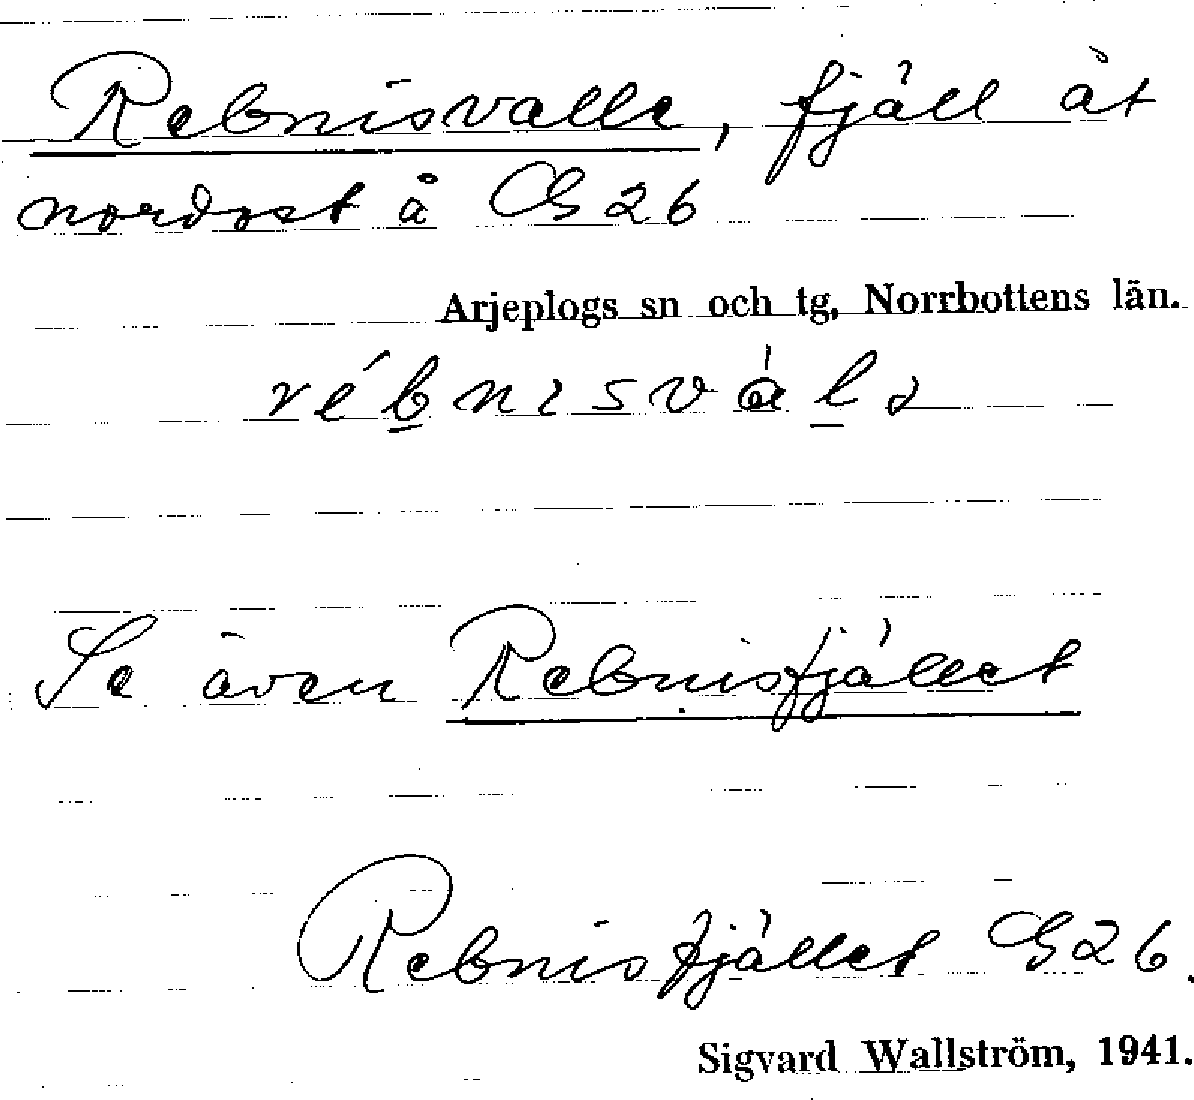 Rebnisvalle, fjäll åt
nordost å G26
Arjeplogs sn och tg, Norrbottens län.
Se även Rebnisfjället
Rebnisfjället G26.
Sigvard Wallström, 1941.